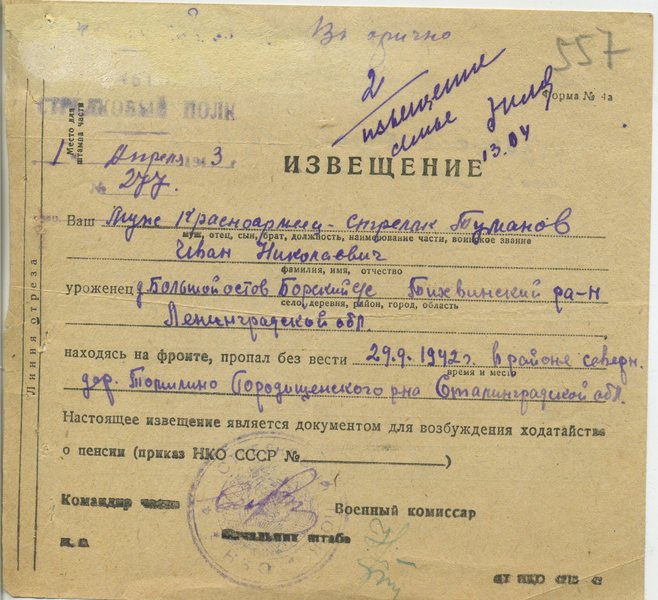 Вторично
557
2
извещение
семье
13.04
Форма № 4а
СТРЕЛКОВЫЙ ПОЛК
Место для
штампа части
1 Апреля 3
№ 277.
ИЗВЕЩЕНИЕ
Ваш Муж Красноармеец-стрелок Туманов
муж, отец, сын, брат, должность, наименование части, воинское звание
Иван Николаевич
фамилия, имя, отчество
уроженец д Большой остов Борский с/с Тихвинский ра-н
село, деревня, район, город, область
Ленинградской обл.
находясь на фронте, пропал без вести 29.9.1942г. в районе северн.
время и место
дер. Томилино Городищенского р-на Сталинградской обл.
Настоящее извещение является документом для возбуждения ходатайства
о пенсии (приказ НКО СССР № )
Командир части
Военный комиссар
Начальник штаба
Линия отреза